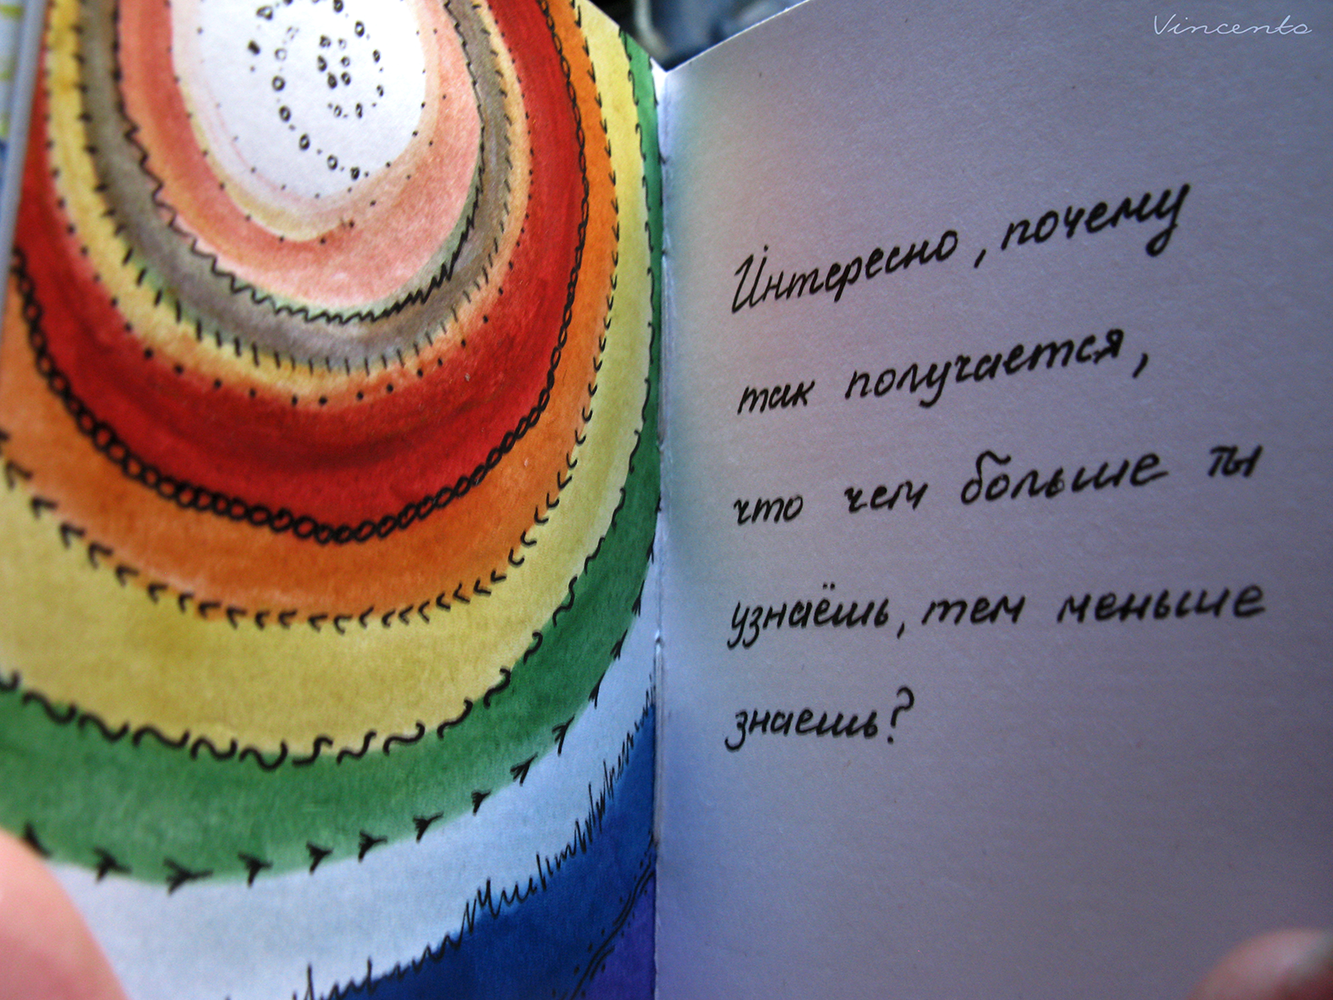 Vincento
Интересно, почему
так получается,
что чем больше ты
узнаёшь, тем меньше
знаешь?